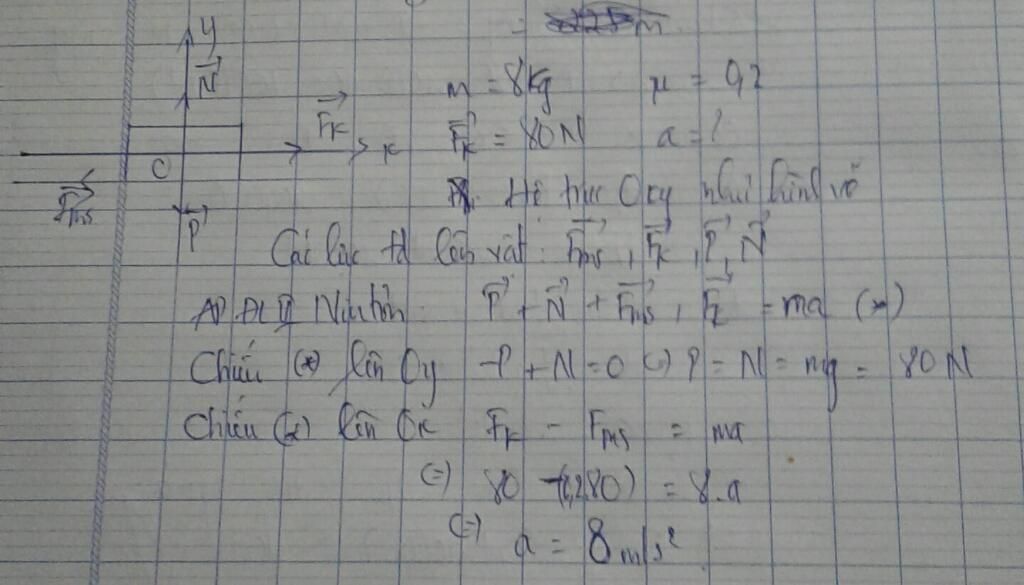 y
N
m = 8kg μ = 0,2
Fk
Fk = 80N a = ?
x
O
Hệ trục Oxy như hình vẽ
Fms
P
Các lực td lên vật: Fms, Fk, P, N
AD ĐL II Niutơn: P + N + Fms, Fk = ma (*)
Chiếu (*) lên Oy -P + N = 0 (=) P = N = mg = 80N
Chiếu (*) lên Ox Fk - Fms = ma
(=) 80 - (0,2.80) = 8.a
(=) a = 8 m/s²